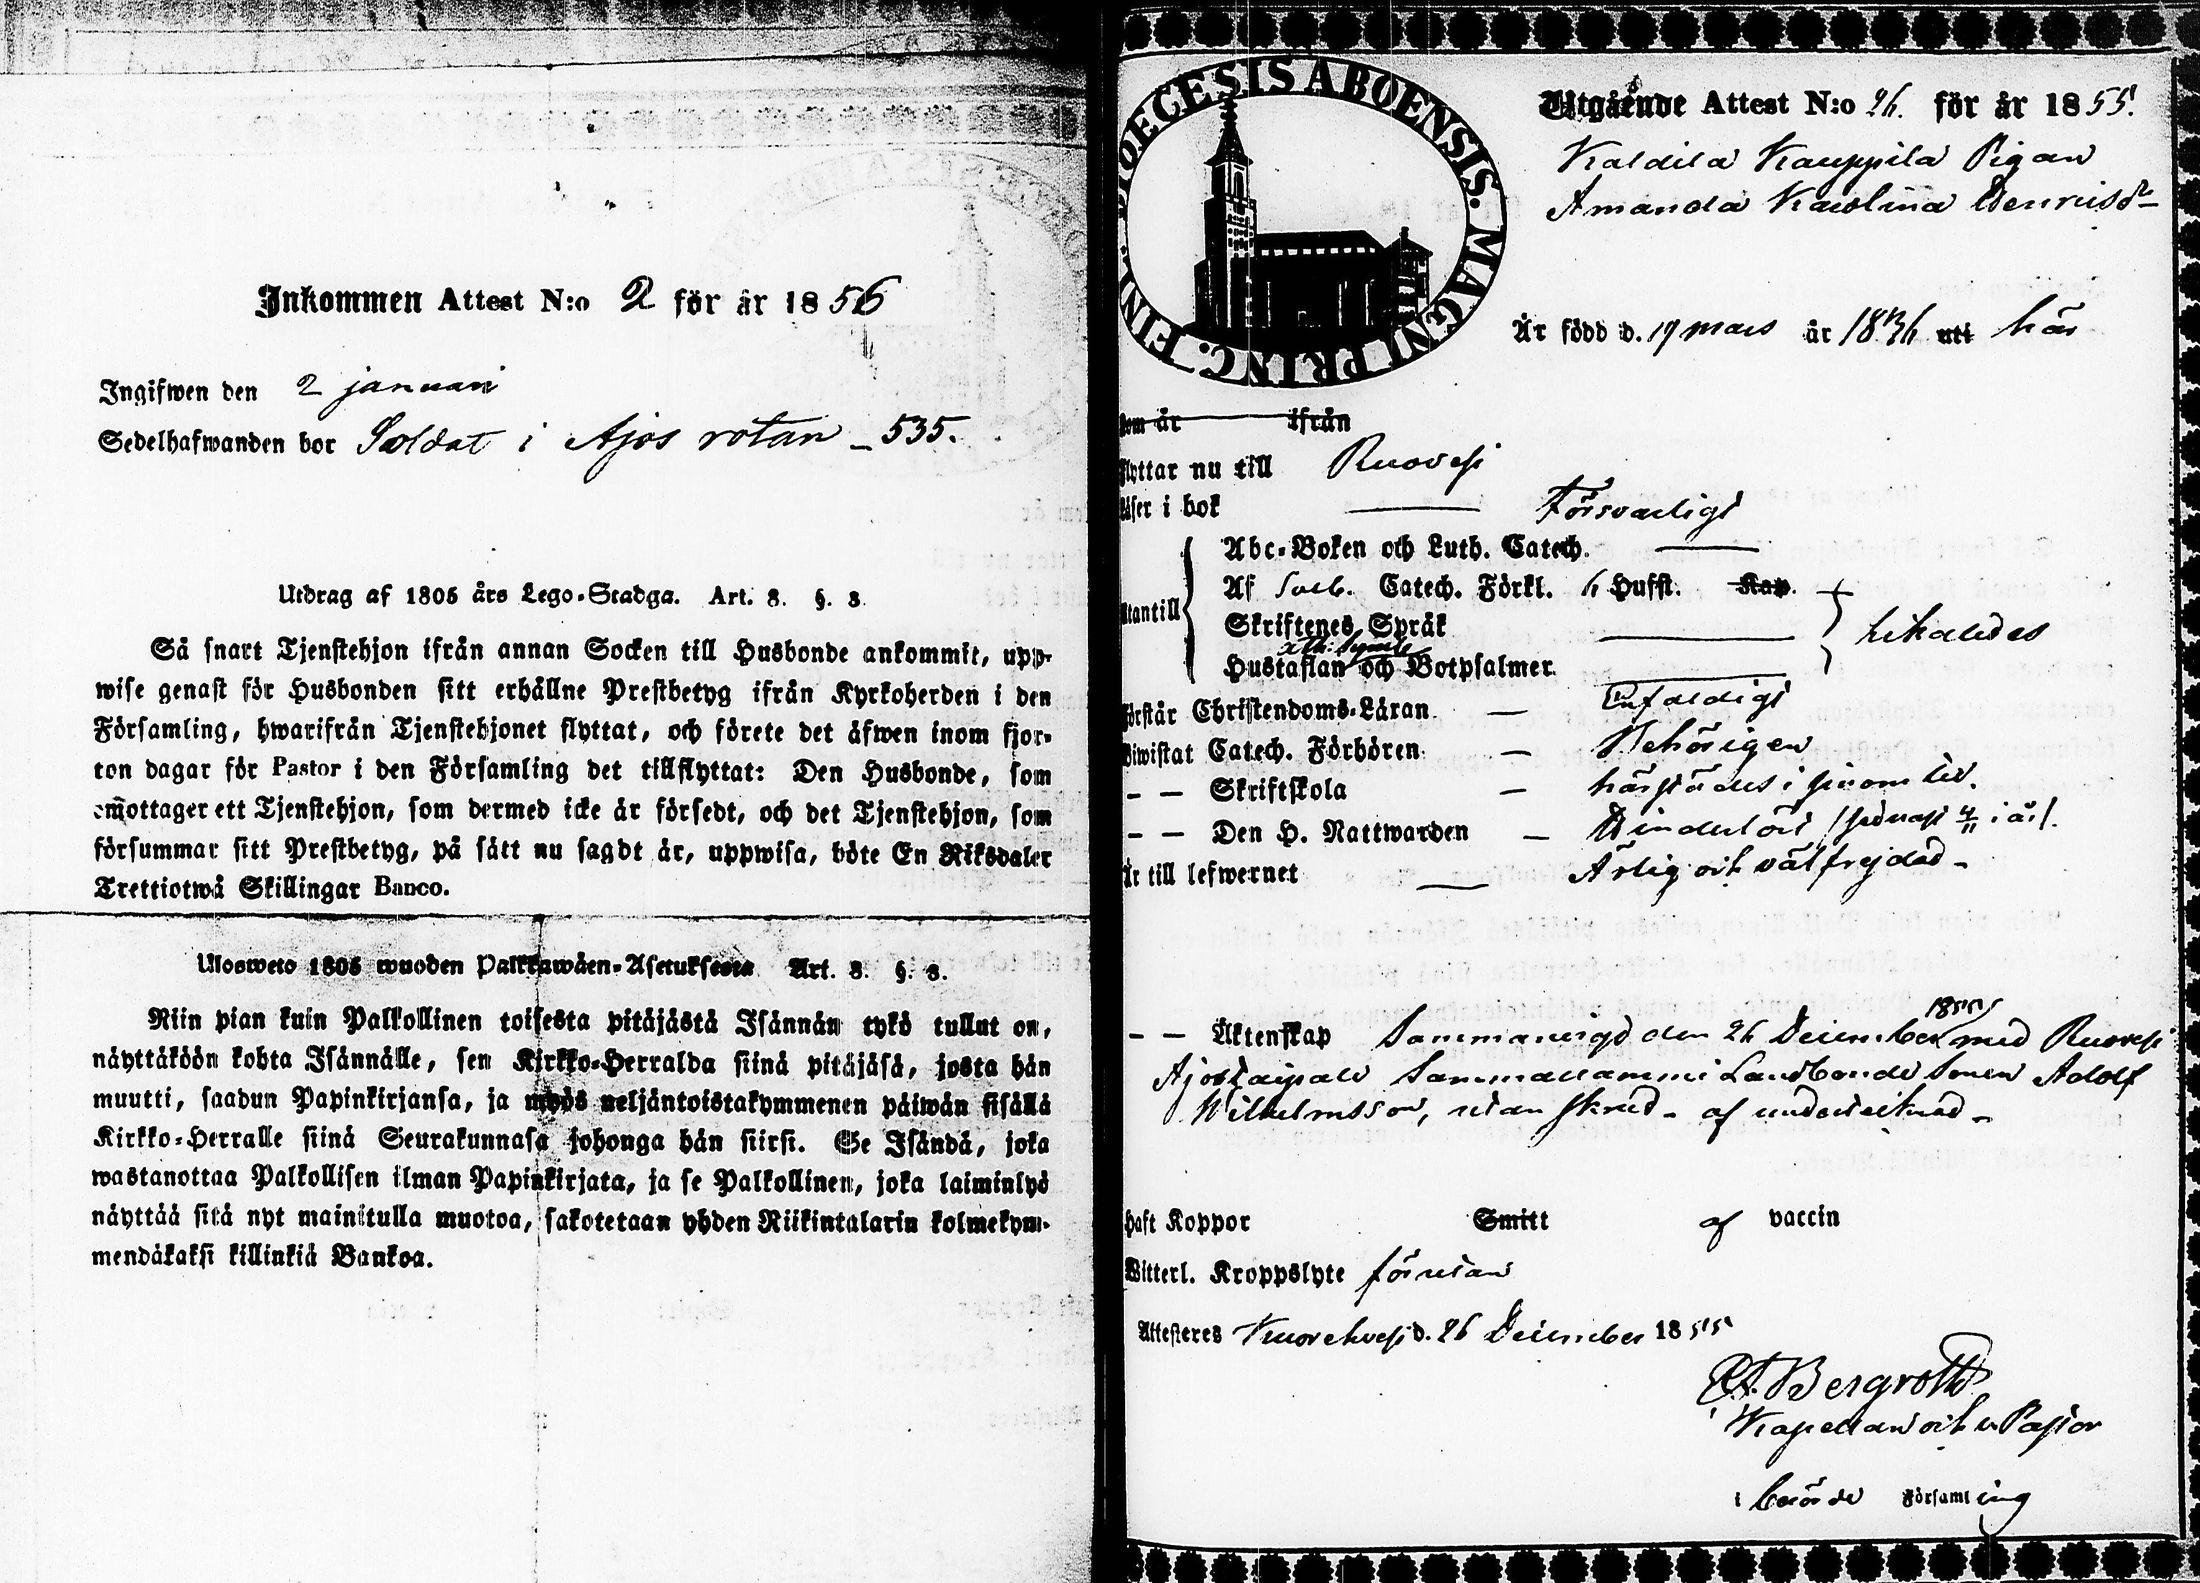 Inkommen Attest N:o 2 för år 1856
Ingifwen den 2 januari
Sedelhafwanden bor Soldat i Ajos rotan – 535.
Utdrag af 1805 års Lego-Stadga. Art. 8. §. 8.
Så snart Tjenstehjon ifrån annan Socken till Husbonde ankommit, upp-
wise genast för Husbonden sitt erhållne Prestbetyg ifrån Kyrkoherden i den
Församling, hwarifrån Tjenstehjonet flyttat, och förete det äfwen inom fjor-
ton dagar för Pastor i den Församling det tillflyttat: Den Husbonde, som
emottager ett Tjenstehjon, som dermed icke är försedt, och det Tjenstehjon, som
försummar sitt Prestbetyg, på sätt nu sagdt är, uppwisa, böte En Riksdaler
Trettiotwå Skillingar Banco.
Ulosweto 1805 wuoden Palkkawäen-Asetuksesta Art. 8. §. 8.
Niin pian kuin Palkollinen toisesta pitäjästä Isännän tykö tullut on,
näyttäköön kohta Isännälle, sen Kirkko-Herralda siinä pitäjäsä, josta hän
muutti, saadun Papinkirjansa, ja myös neljäntoistakymmenen päiwän sisällä
Kirkko-Herralle siinä Seurakunnasa johonga hän siirsi. Se Isändä, joka
wastanottaa Palkollisen ilman Papinkirjata, ja se Palkollinen, joka laiminlyö
näyttää sitä nyt mainitulla muotoa, sakotetaan yhden Riikintalarin kolmekym-
mendäkaksi killinkiä Bankoa.
DIOECESIS ABOENSIS. MAGNI PRINC. FINL.
Utgående Attest N:o 26. för år 1855.
Kaldila Kauppila Pigan
Amanda Karolina Henriksdr
Är född d. 19 mars år 1836 uti här
som är ifrån
flyttar nu till Ruovesi
läser i bok — Försvarligt
utantill
Abc-Boken och Luth. Catech. —
Af Sveb. Catech. Förkl. 6 Hufst. Kap.
Skriftenes Språk —
Hustaflan och Botpsalmer
förstår Christendoms-Läran — Enfaldigt
biwistat Catech. Förhören — Behörigen
– – Skriftskola — härstädes i sinom tid.
– – Den H. Nattwarden — sednast 4/11 i år
är till lefwernet — Ärlig och välfrejdad –
– – Äktenskap Sammanvigd den 26 December 1855 med Ruovesi
Ajostaipale Sammallammi Landbonde Sonen Adolf
Wilhelmsson, utan skrud – af undertecknad –
haft Koppor Smitt af vaccin
Witterl. Kroppslyte förutan
Attesteres Kuorehvesi d. 26 December 1855
Bergroth
Kapellan och v. Pastor
i berörde Församling